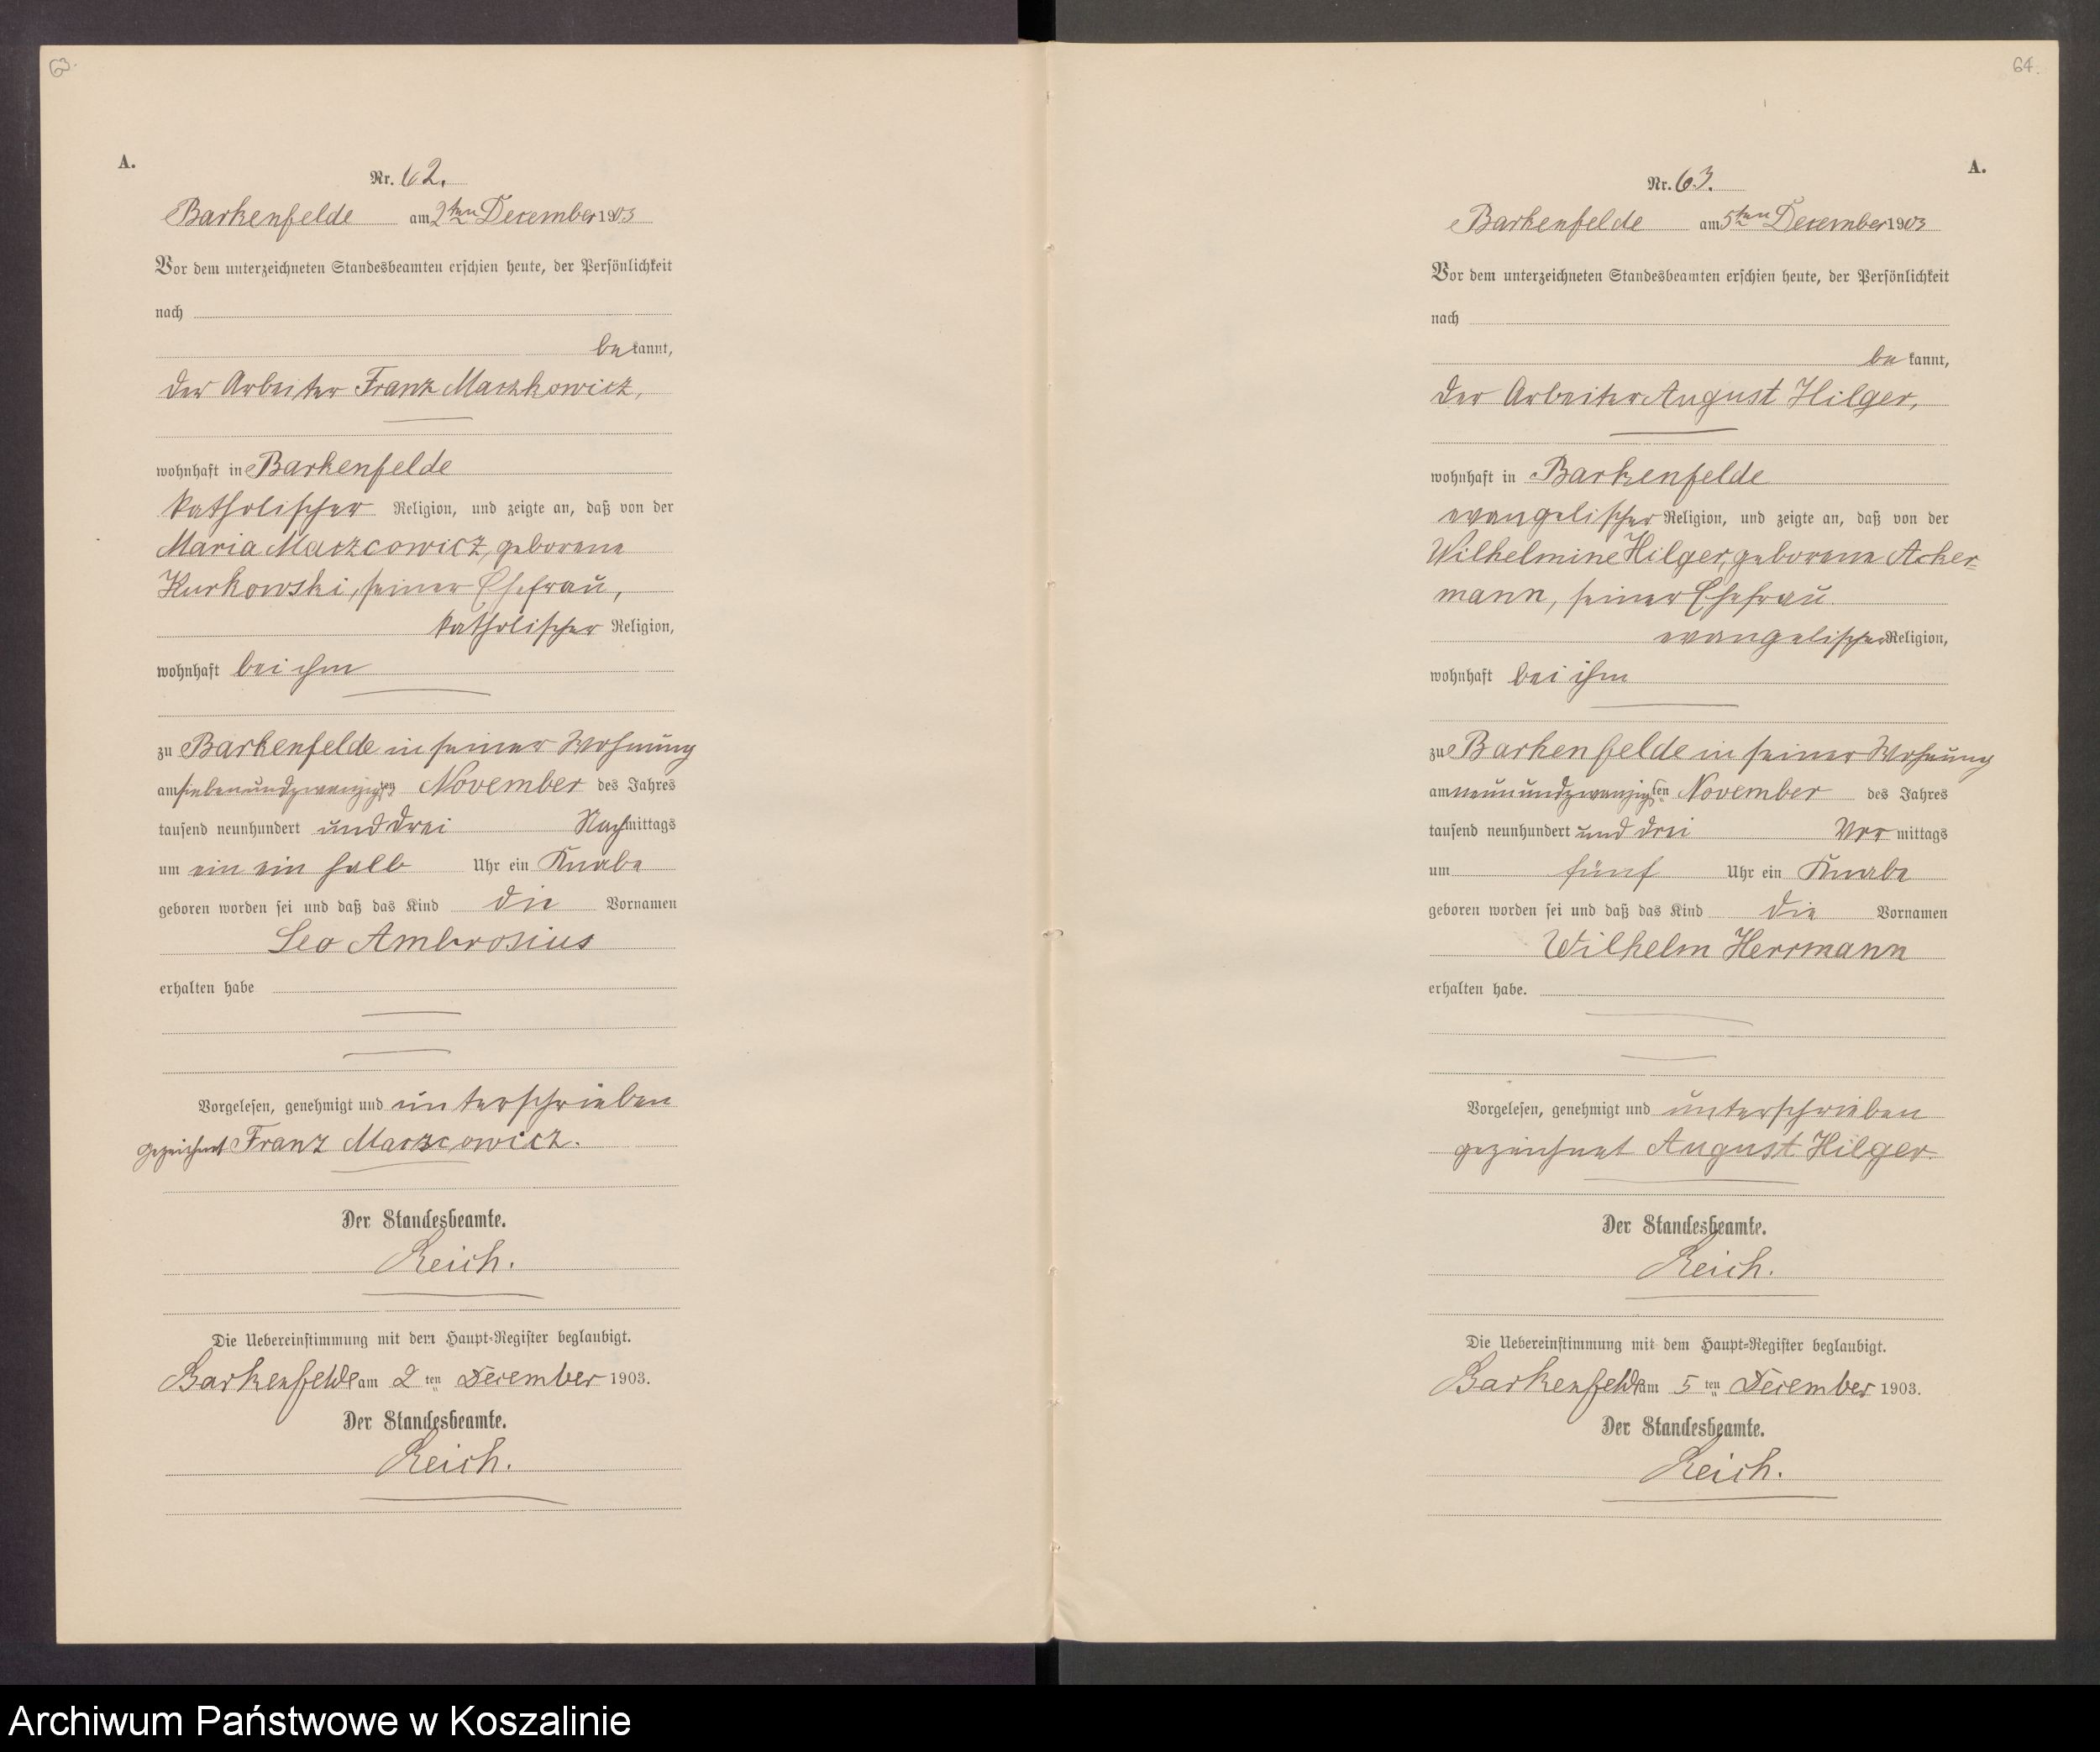 63.
A.
Nr. 62.
Barkenfelde am 2ten December 1903
Vor dem unterzeichneten Standesbeamten erschien heute, der Persönlichkeit
nach
be kannt,
der Arbeiter Franz Maszkowicz,
wohnhaft in Barkenfelde
katholischer Religion, und zeigte an, daß von der
Maria Maszcowicz, geborene
Kurkowski, seiner Ehefrau,
katholischer Religion,
wohnhaft bei ihm
zu Barkenfelde in seiner Wohnung
am siebenundzwanzigsten November des Jahres
tausend neunhundert und drei Nachmittags
um ein ein halb Uhr ein Knabe
geboren worden sei und daß das Kind die Vornamen
Leo Ambrosius
erhalten habe
Vorgelesen, genehmigt und unterschrieben
gezeichnet Franz Maszcowicz.
Der Standesbeamte.
Reich.
Die Uebereinstimmung mit dem Haupt-Register beglaubigt.
Barkenfelde am 2 ten December 1903.
Der Standesbeamte.
Reich.
64.
A.
Nr. 63.
Barkenfelde am 5ten December 1903
Vor dem unterzeichneten Standesbeamten erschien heute, der Persönlichkeit
nach
be kannt,
der Arbeiter August Hilger,
wohnhaft in Barkenfelde
evangelischer Religion, und zeigte an, daß von der
Wilhelmine Hilger, geborene Acker=
mann, seiner Ehefrau.
evangelischer Religion,
wohnhaft bei ihm
zu Barkenfelde in seiner Wohnung
am neunundzwanzigsten November des Jahres
tausend neunhundert und drei Vor mittags
um fünf Uhr ein Knabe
geboren worden sei und daß das Kind die Vornamen
Wilhelm Herrmann
erhalten habe.
Vorgelesen, genehmigt und unterschrieben
gezeichnet August Hilger.
Der Standesbeamte.
Reich.
Die Uebereinstimmung mit dem Haupt-Register beglaubigt.
Barkenfelde am 5 ten December 1903.
Der Standesbeamte.
Reich.
Archiwum Państwowe w Koszalinie